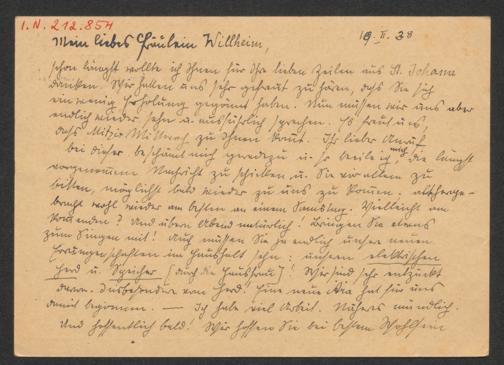 I.N. 212.854
19.II.38
Mein liebes Fräulein Willheim,
schon längst wollte ich Ihnen für Ihre lieben Zeilen aus St. Johann
danken. Wir haben uns sehr gefreut zu hören, dass Sie sich
ein wenig Erholung gegönnt haben. Nun müssen wir uns aber
endlich wieder sehen u. ausführlich sprechen. Es freut uns,
dass Mitzi zu Ihnen kommt. Ihr lieber Anruf
bei dieser beschämt mich geradezu u. so beeile ich mich, die längst
vorgenommene Nachricht zu schicken u. Sie vor allem zu
bitten, möglichst bald wieder zu uns zu kommen:
wohl wieder am besten an einem Samstag. Vielleicht am
kommenden? Und übern Abend natürlich! Bringen Sie etwas
zum Singen mit! Auch müssen Sie ja endlich unsere neuen
Errungenschaften im Haushalt sehn: unsern elektrischen
Herd u. Speicher (durch die Hausfrau)! Wir sind sehr entzückt
davon. Insbesondere vom Herd! Eine neue Ära hat für uns
damit begonnen. — Ich habe viel Arbeit. Näheres mündlich.
Und hoffentlich bald! Wir hoffen Sie bei bestem Wohlsein